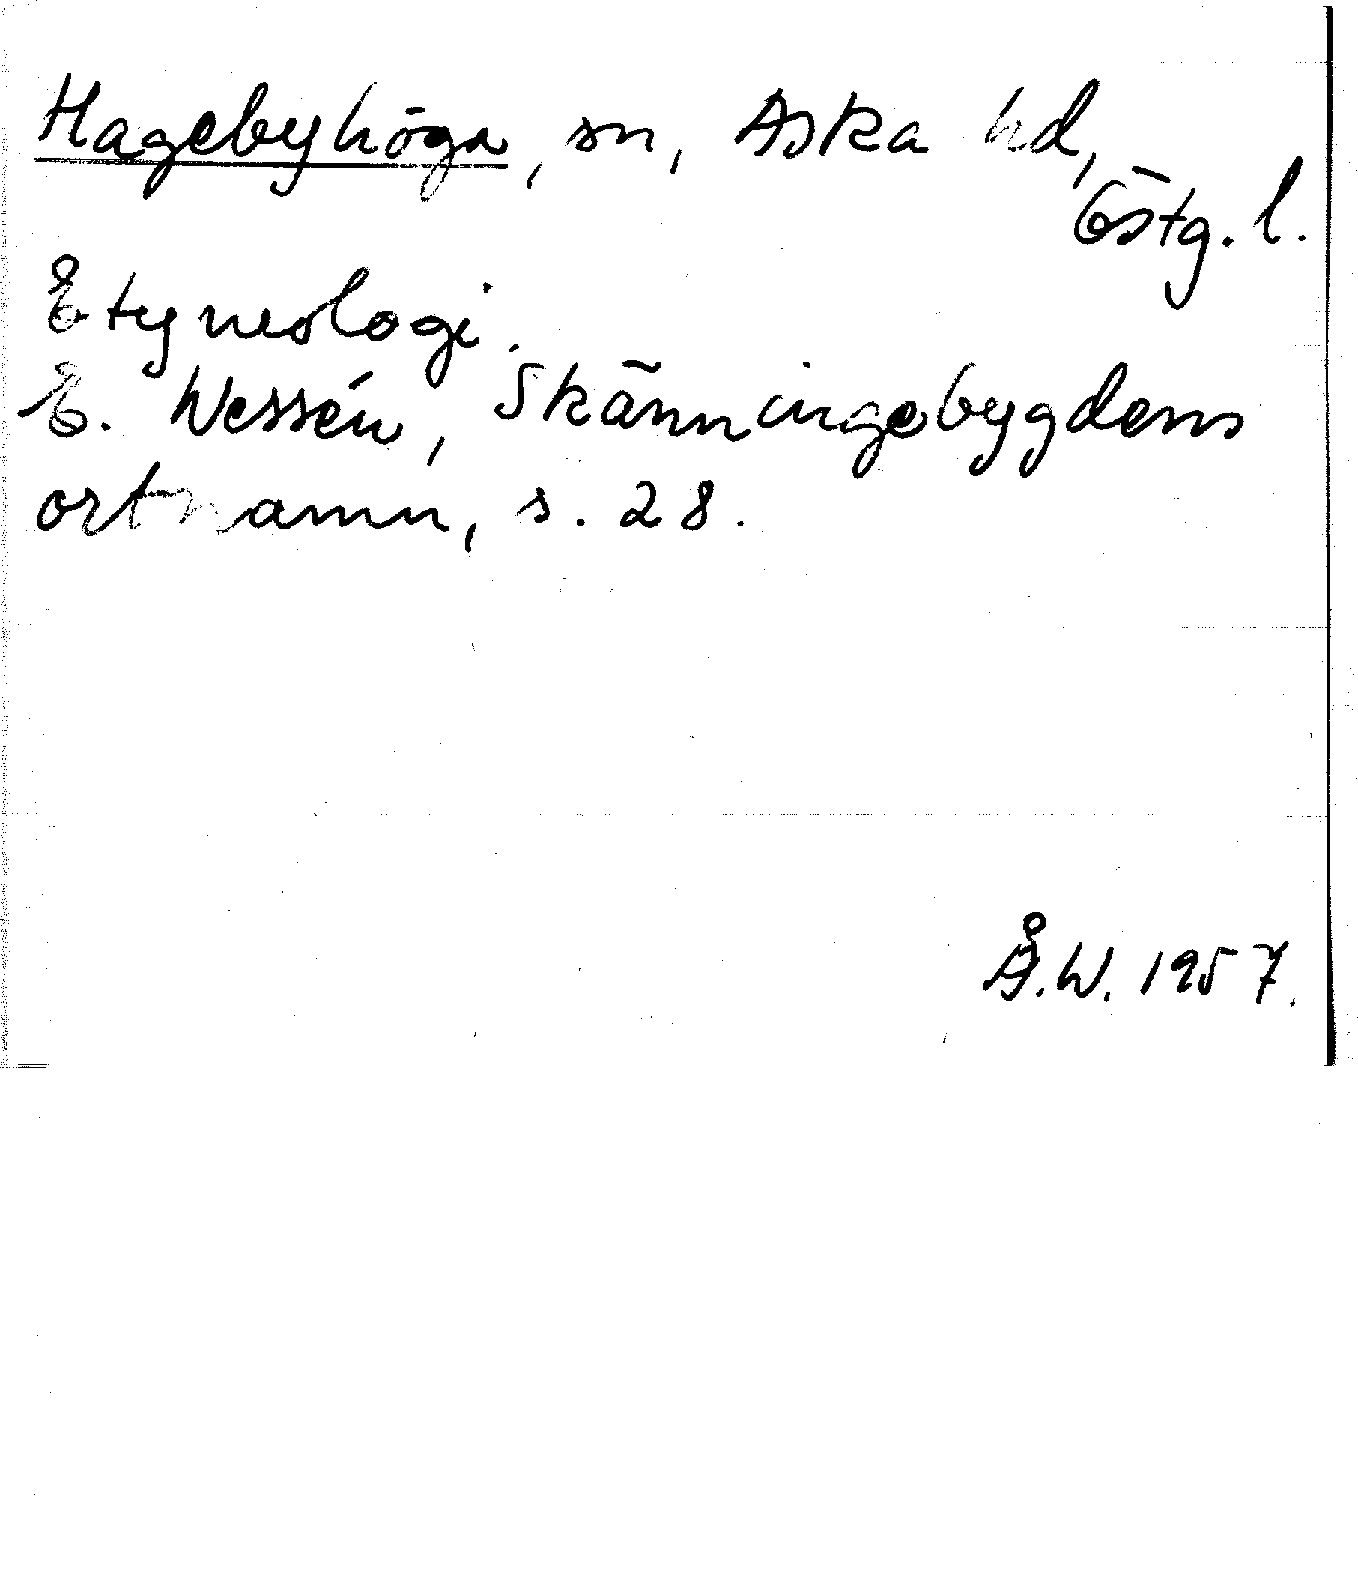 Hagebyhöga, sn, Aska hd,
Östg. l.
Etymologi.
E. Wessén, Skänningebygdens
ortnamn, s. 28.
Å.W. 1957.